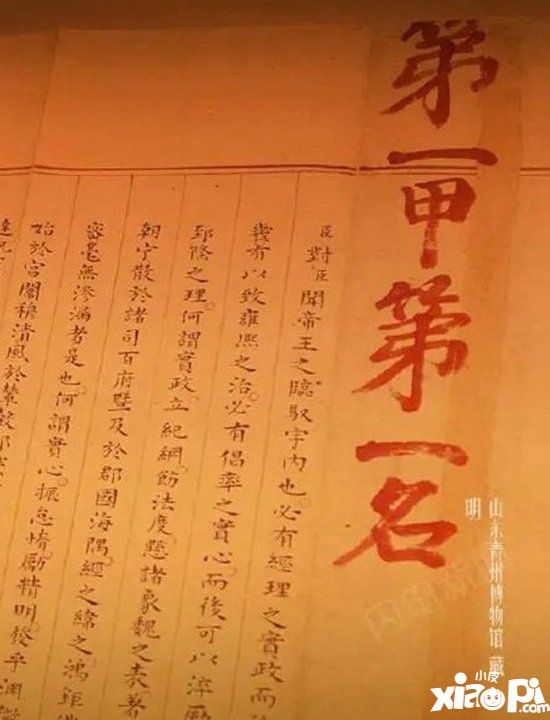 第一甲第一名
臣對臣聞帝王之臨馭宇内也必有經理之實政而
幾有以致雍熙之治必有倡率之實心而後可以淬勵
郅隆之理何謂實政立紀綱飭法度懸諸象魏之表著
朝宁散於諸司百府暨及於郡國海隅經之緯之鴻鉅
密毫無滲漏者是也何謂實心振怠惰勵精明發乎淵
始於宮闈穆清風於輦轂邦
山东青州博物馆 藏
明
小皮
xiaopi.com